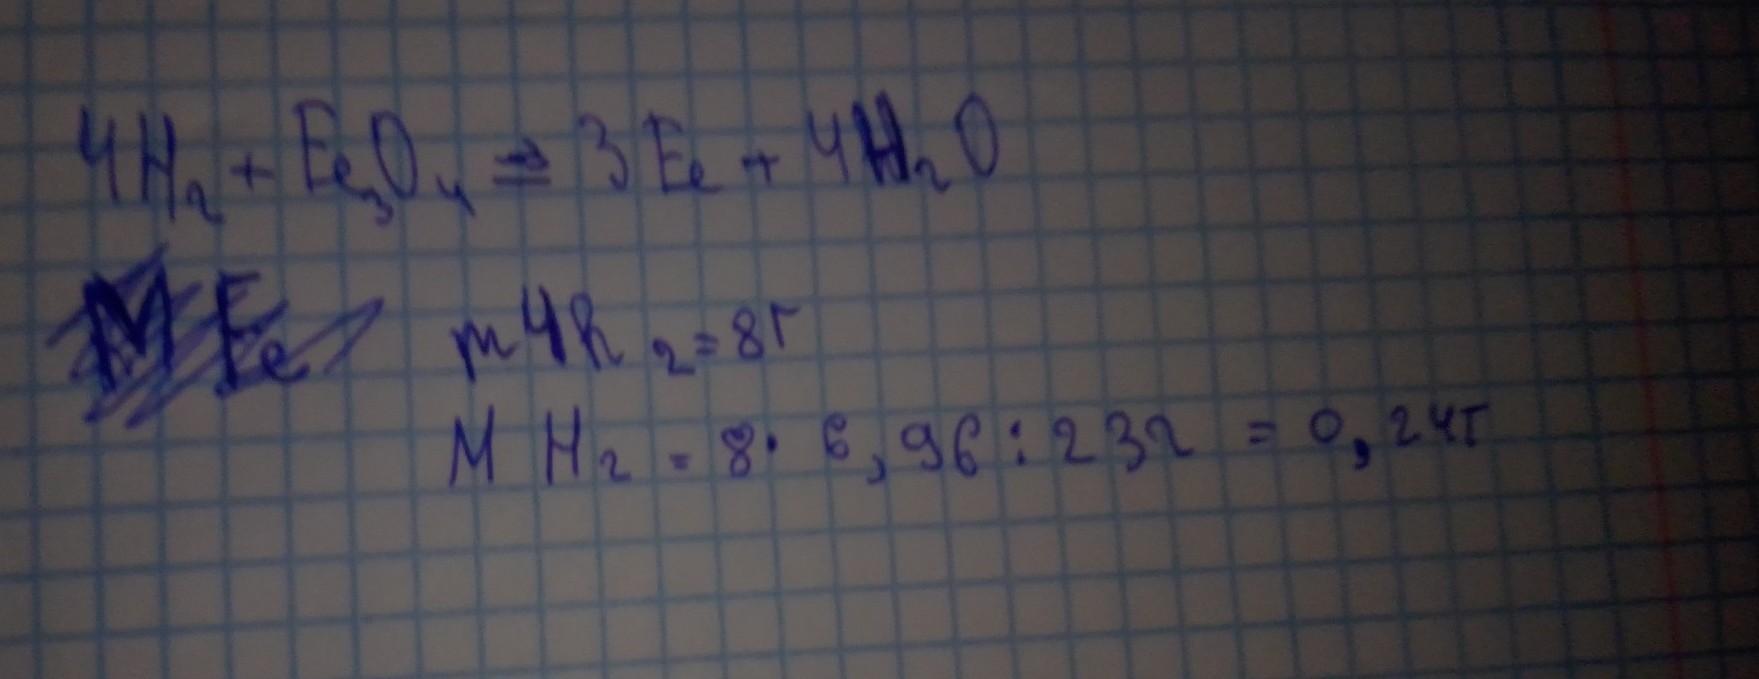 4H₂ + Fe₃O₄ ⇒ 3Fe + 4H₂O
m4H₂=8г
M H₂ = 8· 6,96 : 232 = 0,24г